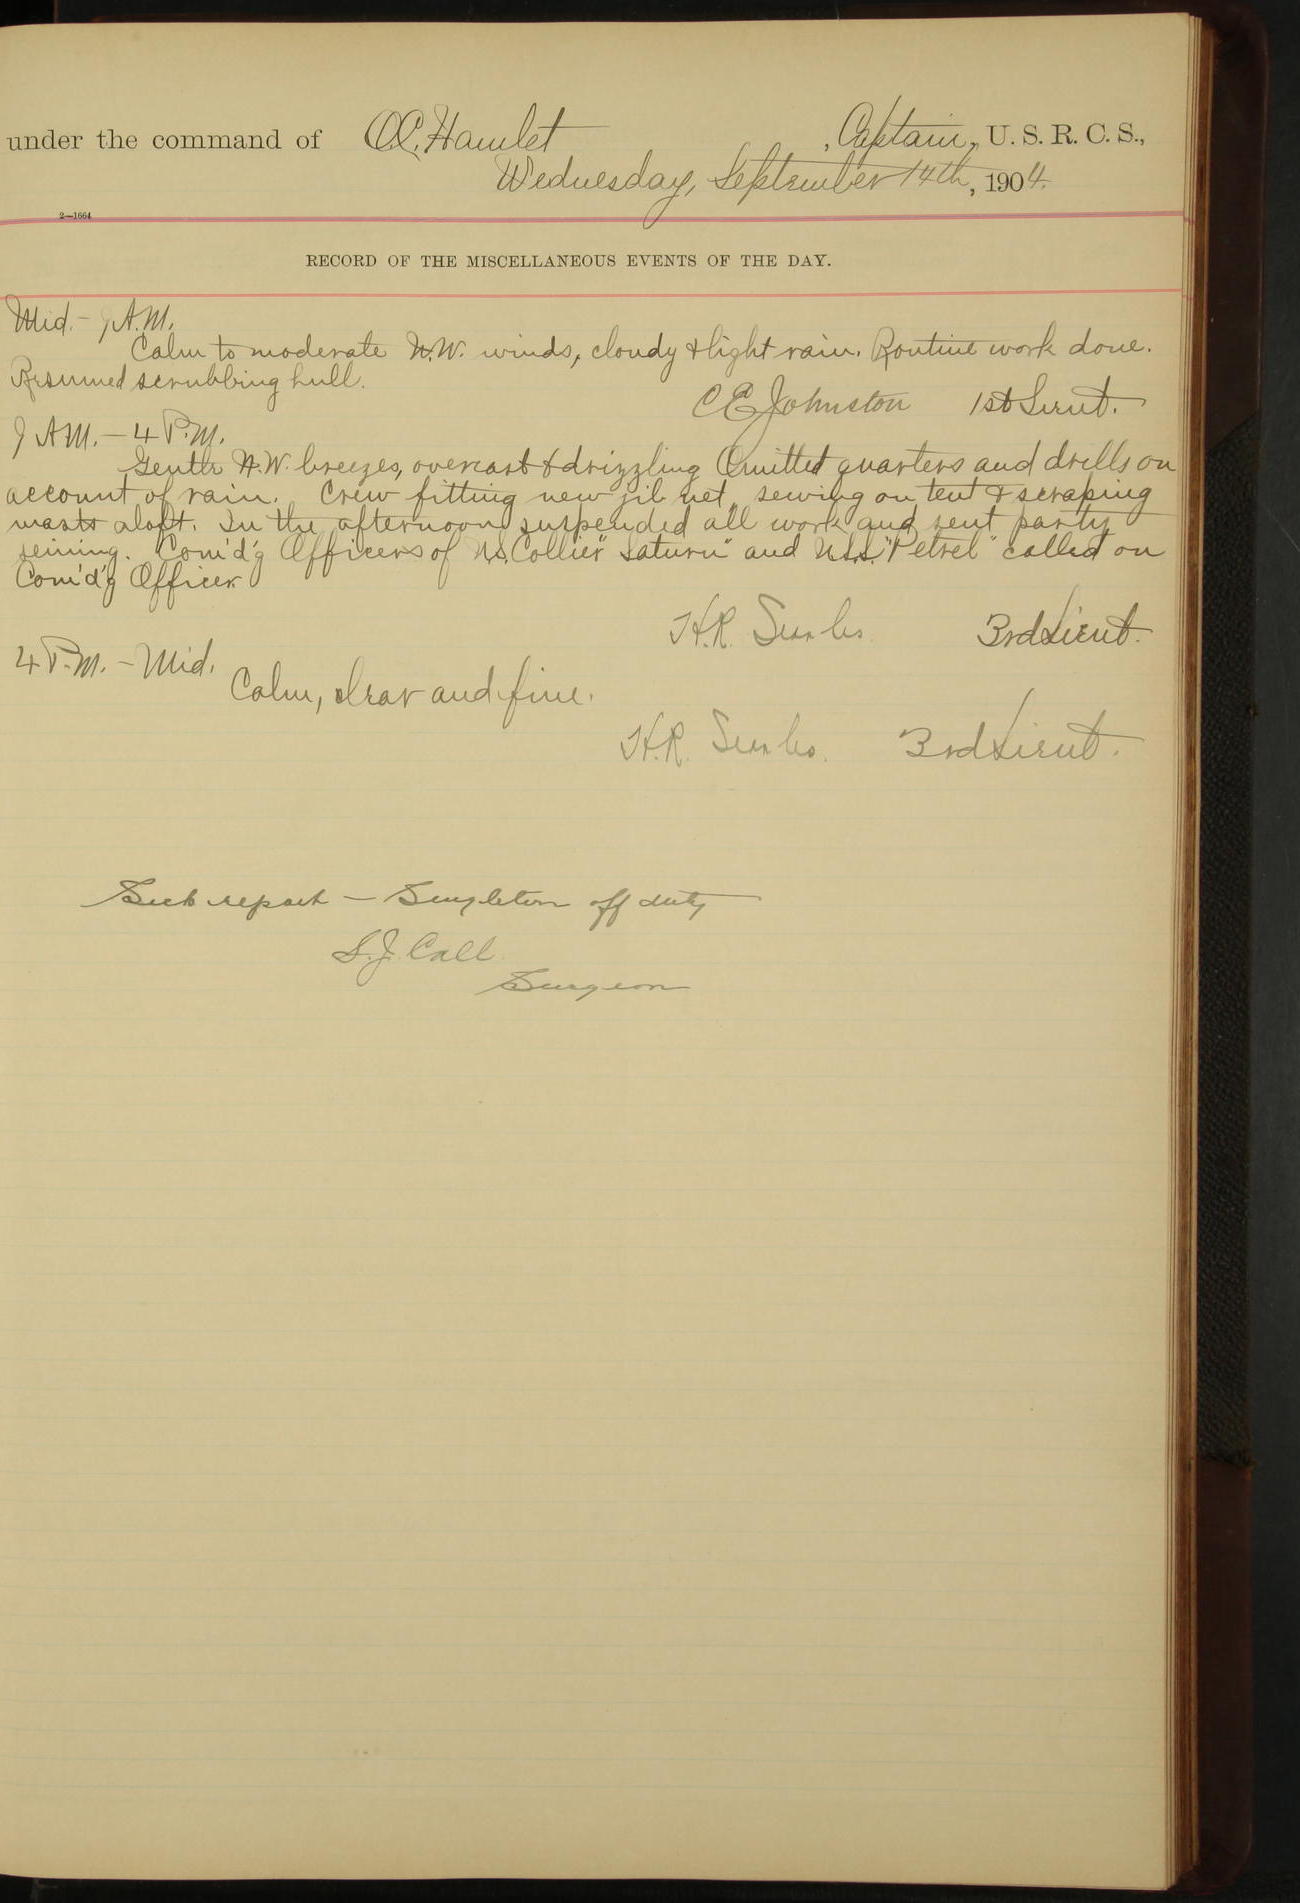 under the command of O.C. Hamlet , Captain, U. S. R. C. S.,
Wednesday, September 14th, 1904.
2—1664
RECORD OF THE MISCELLANEOUS EVENTS OF THE DAY.
Mid. - 9 A.M.
Calm to moderate N.W. winds, cloudy & light rain. Routine work done.
Resumed scrubbing hull.
C E Johnston 1st Lieut.
9 A.M. - 4 P.M.
Gentle N.W. breezes, overcast & drizzling Omitted quarters and drills on
account of rain. Crew fitting new jib net, sewing on tent & scraping
masts aloft. In the afternoon suspended all work and sent party
seining. Com'd'g Officers of U.S. Collier "Saturn" and U.S.S. "Petrel" called on
Com'd'g Officer
H.R. Searles 3rd Lieut.
4 P.M. - Mid.
Calm, clear and fine.
H.R. Searles. 3rd Lieut.
Sick report - Singleton off duty
S.J. Call
Surgeon